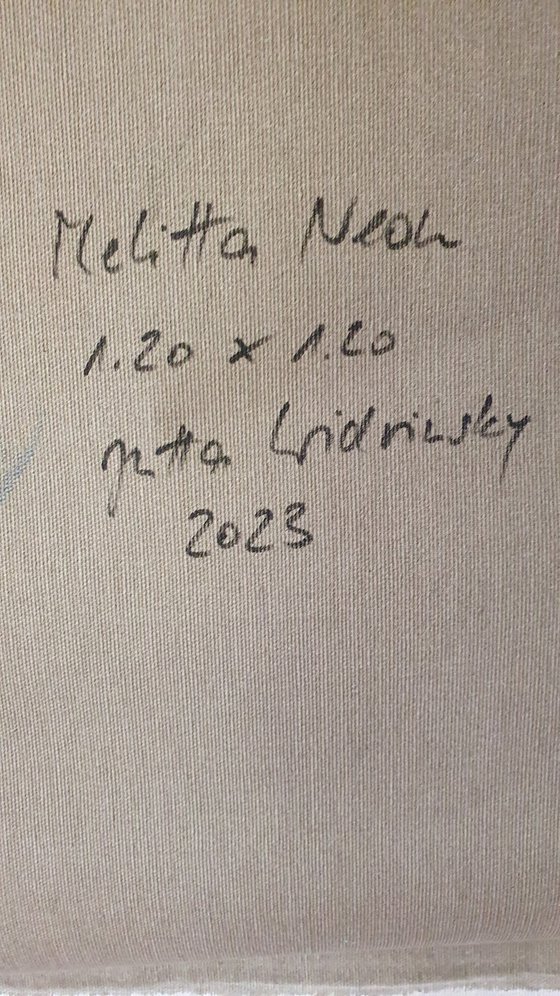 Melitta Neon
1.20 x 1.20
Jutta Widrinsky
2023